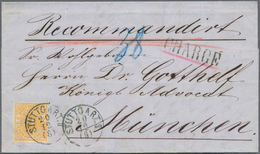 Recommandirt
38
CHARGÉ
Sr. Wohlgeboren
Herrn Dr. Gotthelf
Königl. Advocat
München
STUTTGART
STUTTGART